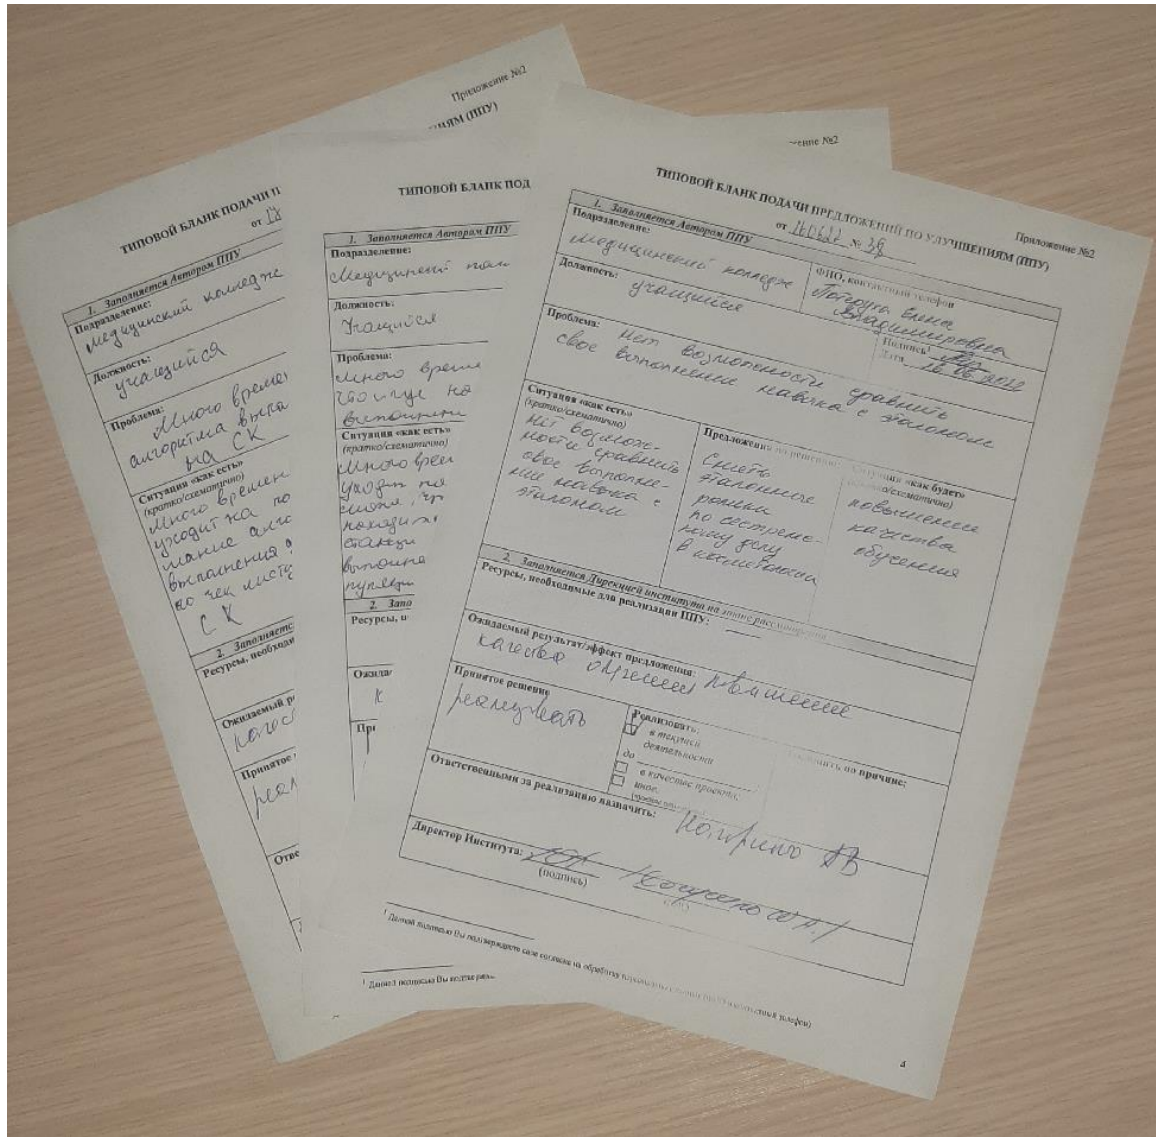 Приложение №2
ЕНИЯМ (ППУ)
ТИПОВОЙ БЛАНК ПОДАЧИ П
от 17
1. Заполняется Автором ППУ
Подразделение:
медицинский колледж
Должность:
учащийся
Проблема:
Много времен
алгоритма выпо
на СК
Ситуация «как есть»
(кратко/схематично)
Много времен
уходит на по
мание алго
выполнения
по чек листу
СК
2. Заполняетс
Ресурсы, необходим
Ожидаемый р
качес
Принятое
реал
Отве
ение №2
ТИПОВОЙ БЛАНК ПОД
1. Заполняется Автором ППУ
Подразделение:
Медицинский кол
Должность:
Учащийся
Проблема:
Много време
Ситуация «как есть»
(кратко/схематично)
Много врем
уходит на
находит
станци
2. Запо
Ресурсы, н
Ожида
к
При
1 Данной подписью Вы подтвержд
Приложение №2
ТИПОВОЙ БЛАНК ПОДАЧИ ПРЕДЛОЖЕНИЙ ПО УЛУЧШЕНИЯМ (ППУ)
от 160622 № 38
1. Заполняется Автором ППУ
Подразделение:
медицинский колледж
ФИО, контактный телефон
Елена
Владимировна
Должность:
учащийся
Подпись1
Дата 16.06.2022
Проблема: Нет возможности сравнить
свое выполнение навыка с эталоном
Ситуация «как есть»
(кратко/схематично)
Нет возмож-
ности сравнить
свое выполне-
ние навыка с
эталоном
Предложения по решению
Снять
эталонные
ролики
по сестринс-
кому делу
в косметологии
Ситуация «как будет»
(кратко/схематично)
повышение
качества
обучения
2. Заполняется Дирекцией института на этапе рассмотрения
Ресурсы, необходимые для реализации ППУ: —
Ожидаемый результат/эффект предложения: повышение
качества обучения
Принятое решение
реализовать
Реализовать:
в текущей
деятельности
до
в качестве проекта,
иное.
Отклонить по причине:
Ответственными за реализацию назначить:
Директор Института:
(подпись)
(ФИО)
1 Данной подписью Вы подтверждаете свое согласие на обработку персональных данных (ФИО, контактный телефон)
4